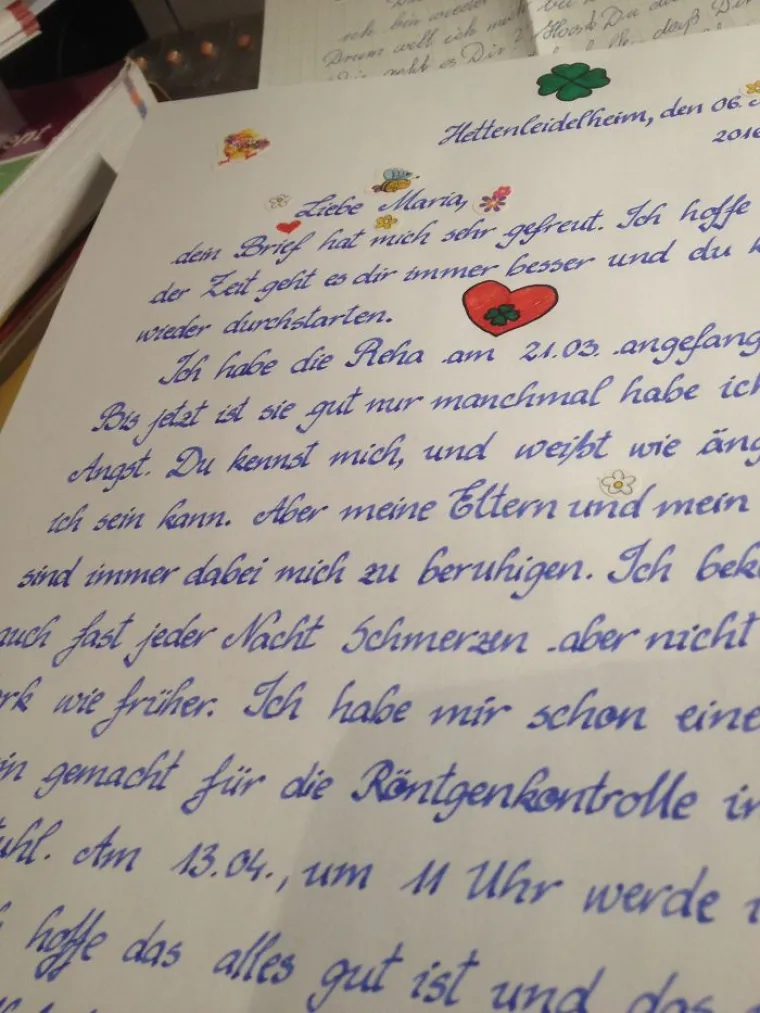 ich bin wieder
Drum will ich mich bei
geht es Dir? Hoast Du
daß Dir
Hettenleidelheim, den 06.
2016
Liebe Maria,
dein Brief hat mich sehr gefreut. Ich hoffe
der Zeit geht es dir immer besser und du
wieder durchstarten.
Ich habe die Reha am 21.03. angefang
Bis jetzt ist sie gut nur manchmal habe ich
Angst. Du kennst mich, und weißt wie äng
ich sein kann. Aber meine Eltern und mein
sind immer dabei mich zu beruhigen. Ich bek
auch fast jeder Nacht Schmerzen aber nicht
rk wie früher. Ich habe mir schon eine
in gemacht für die Röntgenkontrolle in
uhl. Am 13.04., um 11 Uhr werde i
hoffe das alles gut ist und das